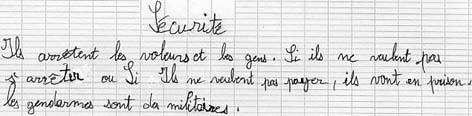 Sécurité
Ils arrêtent les voleurs et les gens. Si ils ne veulent pas
s'arrêter ou Si Ils ne veulent pas payer, ils vont en prison.
les gendarmes sont da militaires.